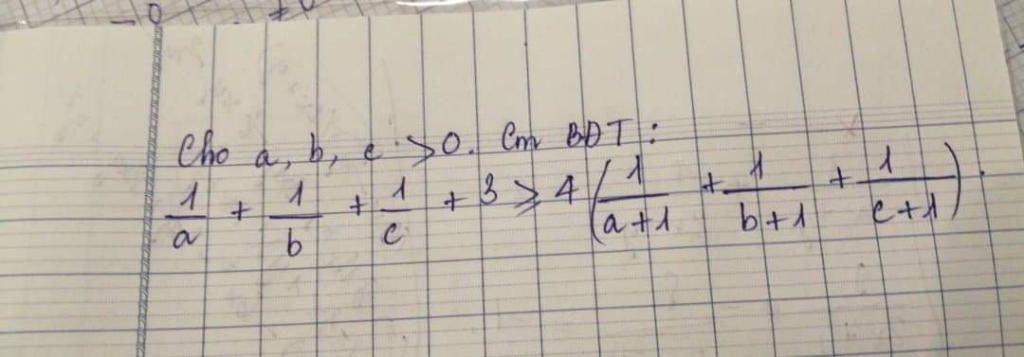 Cho a, b, c > 0. Cm BĐT:
1/a + 1/b + 1/c + 3 ≥ 4 (1/(a+1) + 1/(b+1) + 1/(c+1)).